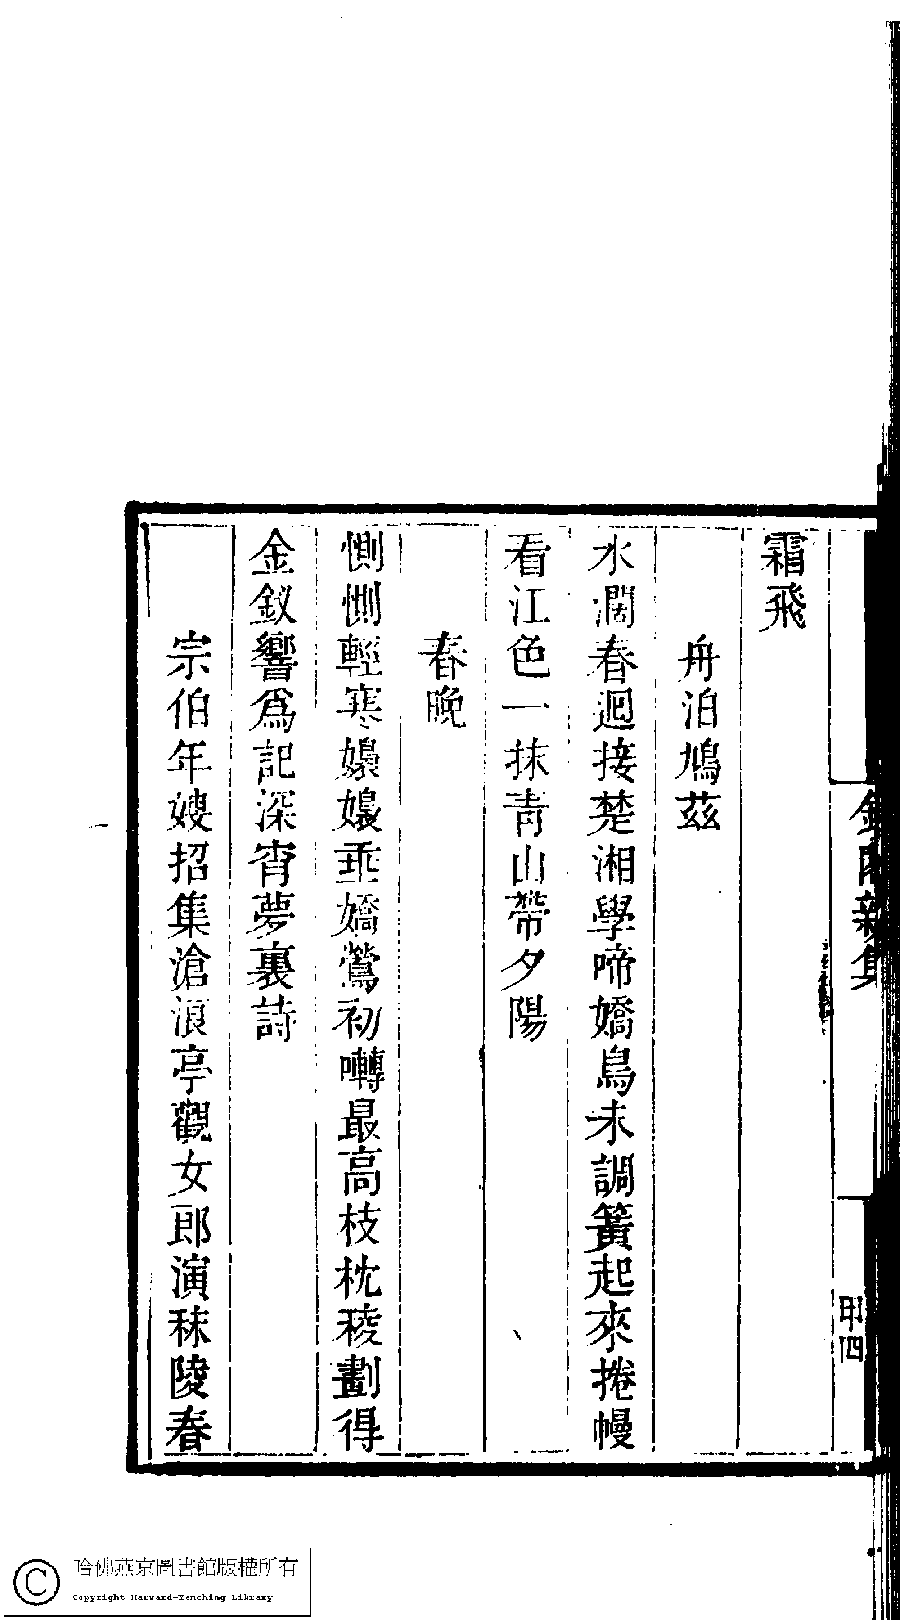 霜飛
舟泊鳩茲
水濶春迴接楚湘學啼嬌鳥未調簧起來捲幔
看江色一抹青山帶夕陽
春晚
惻惻輕寒嬝嬝垂嬌鶯初囀最高枝枕稜劃得
金釵響爲記深宵夢裏詩
宗伯年嫂招集滄浪亭觀女郎演秣陵春
新集
四
哈佛燕京圖書館版權所有
Copyright Harvard-Yenching Library